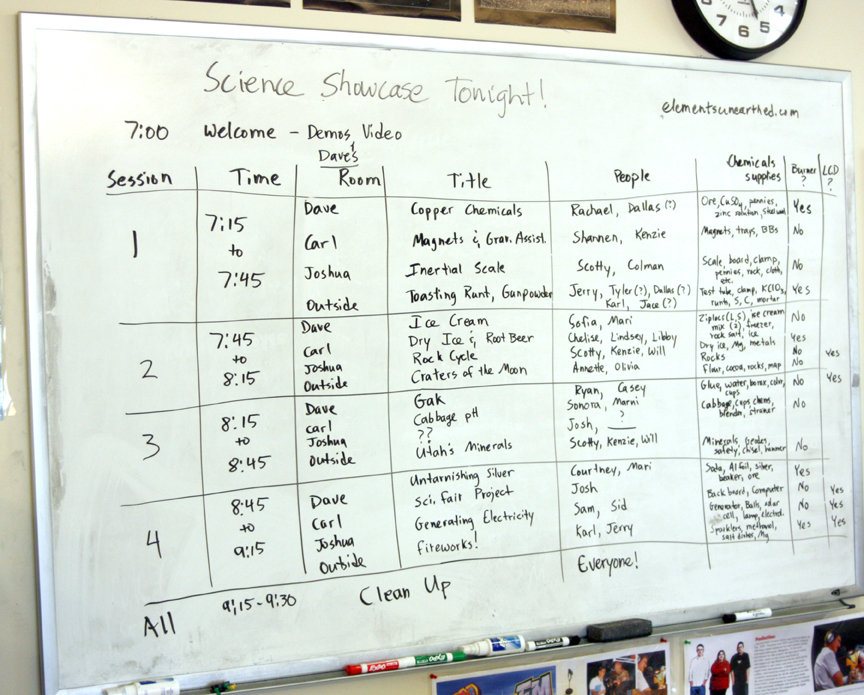 Science Showcase Tonight!
elementsunearthed.com
7:00 Welcome - Demos, & Video
Session Time Dave's Room Title People Chemicals supplies Burner? LCD?
1 7:15 to 7:45
Dave Copper Chemicals Rachael, Dallas (?) Ore, CuSO4, pennies, zinc solution, Yes
Carl Magnets & Gran. Assist. Shannen, Kenzie Magnets, traps, BBs No
Joshua Inertial Scale Scotty, Colman Scale, board, clamp, pennies, rock, cloth, etc. No
Outside Toasting Runt, Gunpowder Jerry, Tyler (?), Dallas (?) Karl, Jace (?) Test tube, clamp, KClO3, runts, S, C, mortar Yes
2 7:45 to 8:15
Dave Ice Cream Sofia, Mari Ziplocs (L,S), ice cream mix (2), freezer, rock salt, ice No
Carl Dry Ice & Root Beer Chelise, Lindsey, Libby Dry ice, Mg, metals Yes
Joshua Rock Cycle Scotty, Kenzie, Will Rocks No Yes
Outside Craters of the Moon Annette, Olivia Flour, cocoa, rocks, map No
3 8:15 to 8:45
Dave Gak Ryan, Casey Glue, water, borax, color, cups No Yes
Carl Cabbage pH Sonora, Marni Cabbage, cups, chems, blender, strainer No
Joshua ?? Josh, ?
Outside Utah's Minerals Scotty, Kenzie, Will Minerals, Geodes, safety, chisel, hammer No
4 8:45 to 9:15
Dave Untarnishing Silver Courtney, Mari Soda, Al foil, silver, beaker, ore Yes
Carl Sci. Fair Project Josh Back board, Computer No Yes
Joshua Generating Electricity Sam, Sid Generator, Balls, solar cell, lamp, electrod. No Yes
Outside Fireworks! Karl, Jerry Sparklers, methanol, salt dishes, Mg Yes Yes
All 9:15-9:30 Clean Up Everyone!
EXPO
EXPO